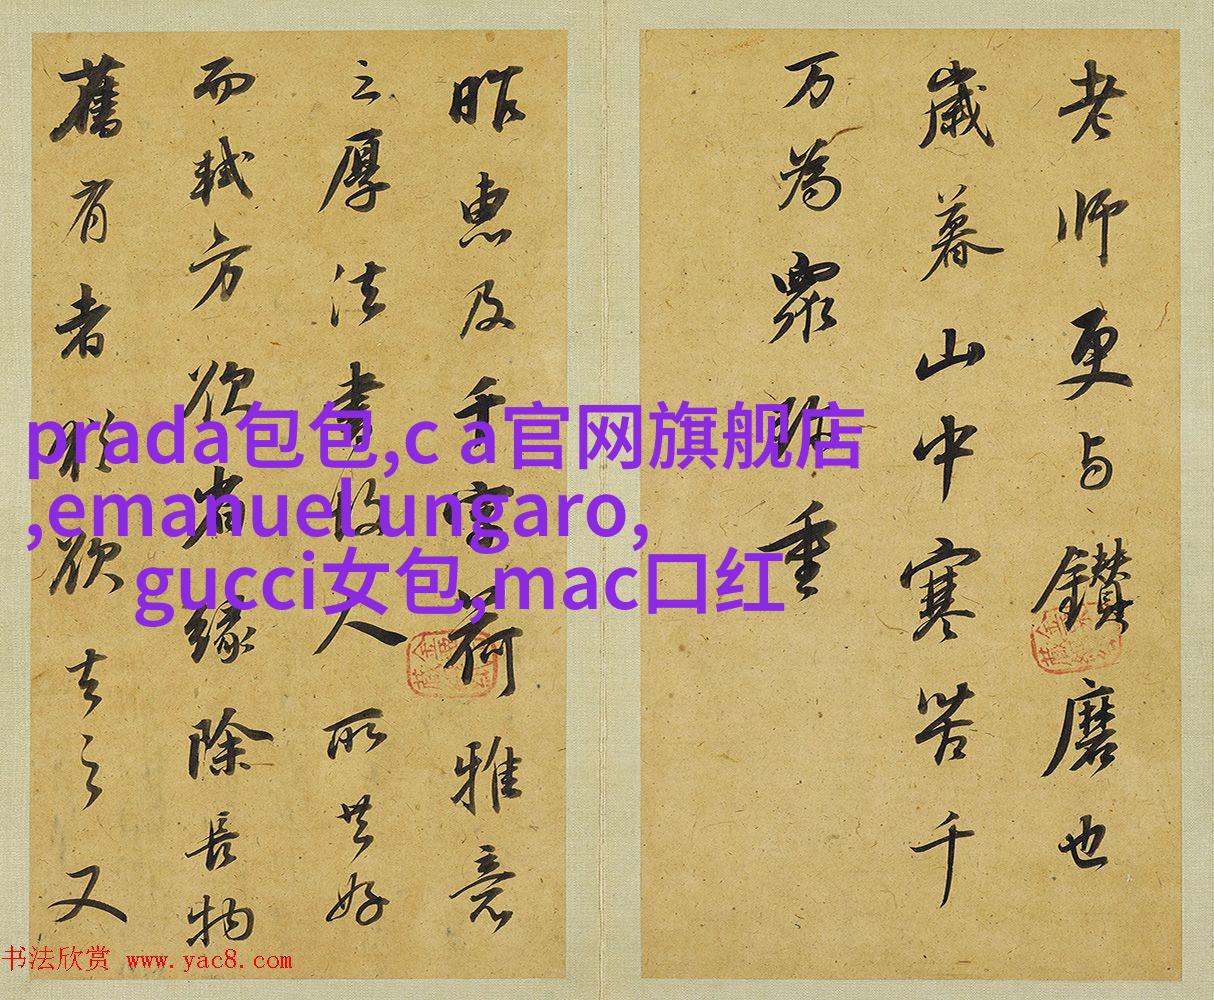 老师更与鑽磨也
嵗暮山中寒苦千
万為衆珎重
昨惠及千字荷雅意
之厚法書人所共好
而軾方欲省緣除長物
舊有者猶欲去之又
prada包包,c a官网旗舰店
,emanuel ungaro,
gucci女包,mac口红
书法欣赏 www.yac8.com